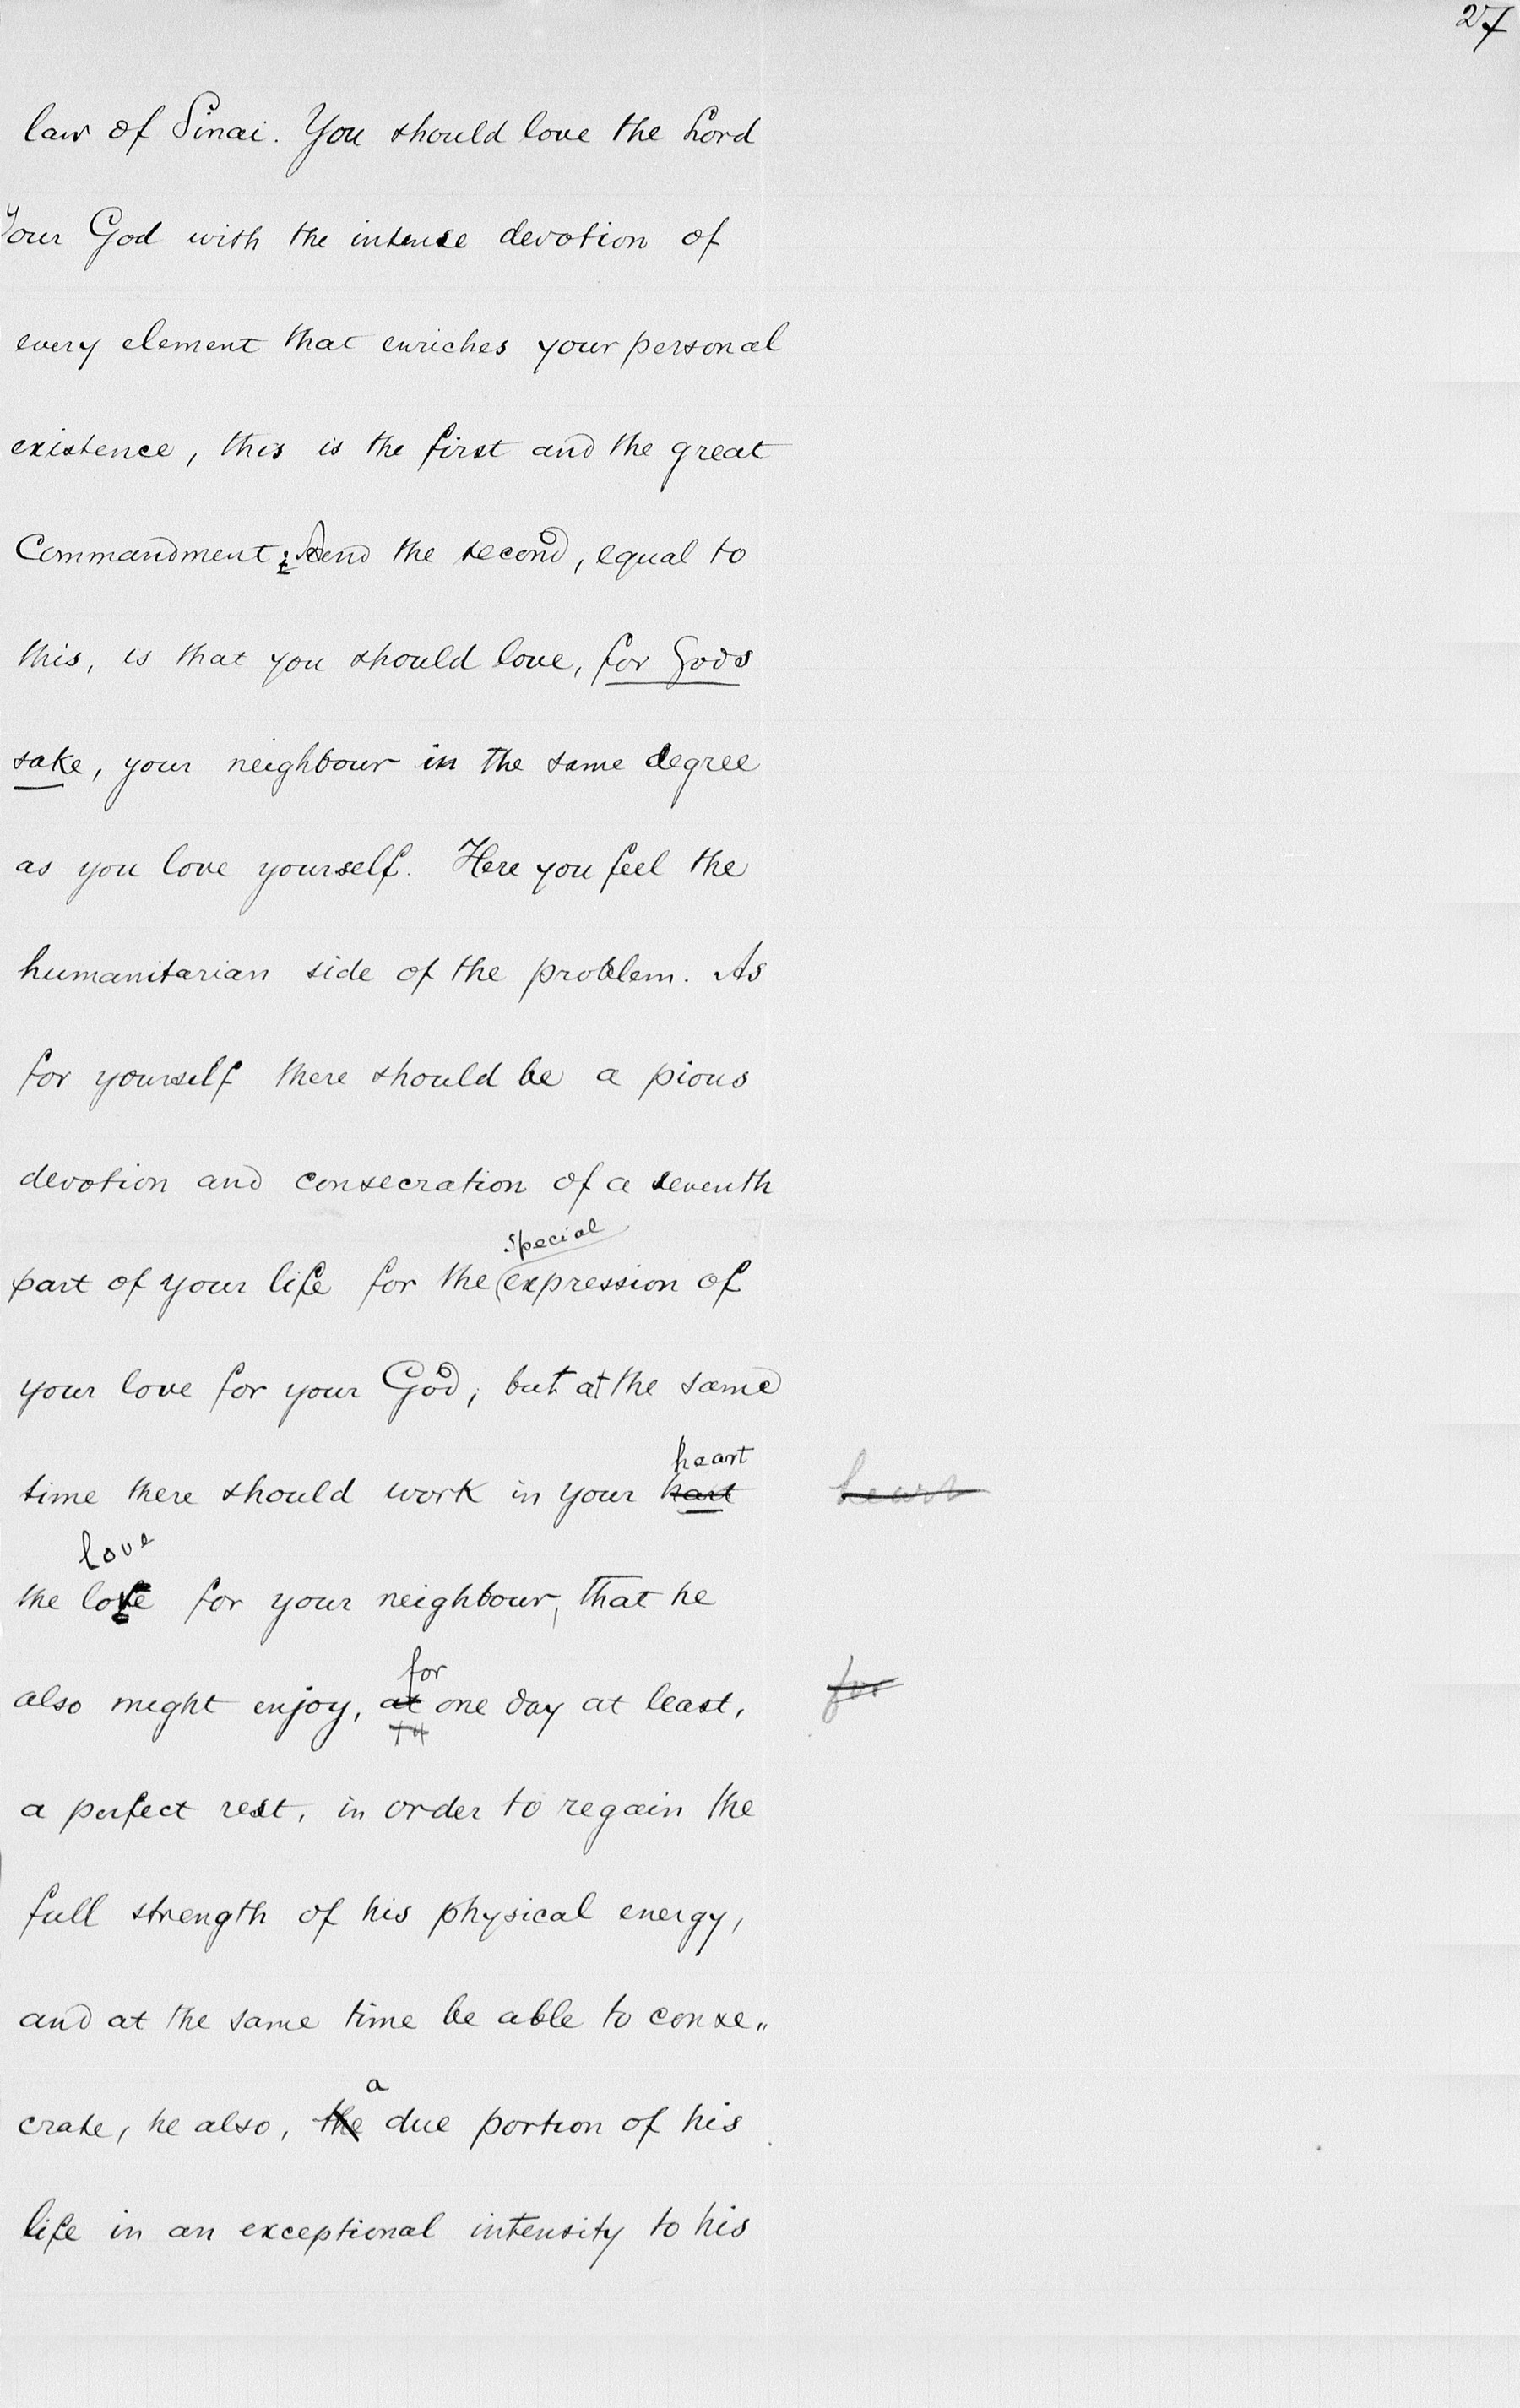 27
law of Sinai. You should love the Lord
your God with the intense devotion of
every element that enriches your personal
existence, this is the first and the great
Commandment; And the second, equal to
this, is that you should love, for Gods
sake, your neighbour in the same degree
as you love yourself. Here you feel the
humanitarian side of the problem. As
for yourself there should be a pious
devotion and consecration of a seventh
special
part of your life for the expression of
your love for your God, but at the same
heart
time there should work in your hart heart
love
the love for your neighbour, that he
for
also might enjoy, at one day at least, for
a perfect rest, in order to regain the
full strength of his physical energy,
and at the same time be able to conse„
a
crate, he also, the due portion of his
life in an exceptional intensity to his